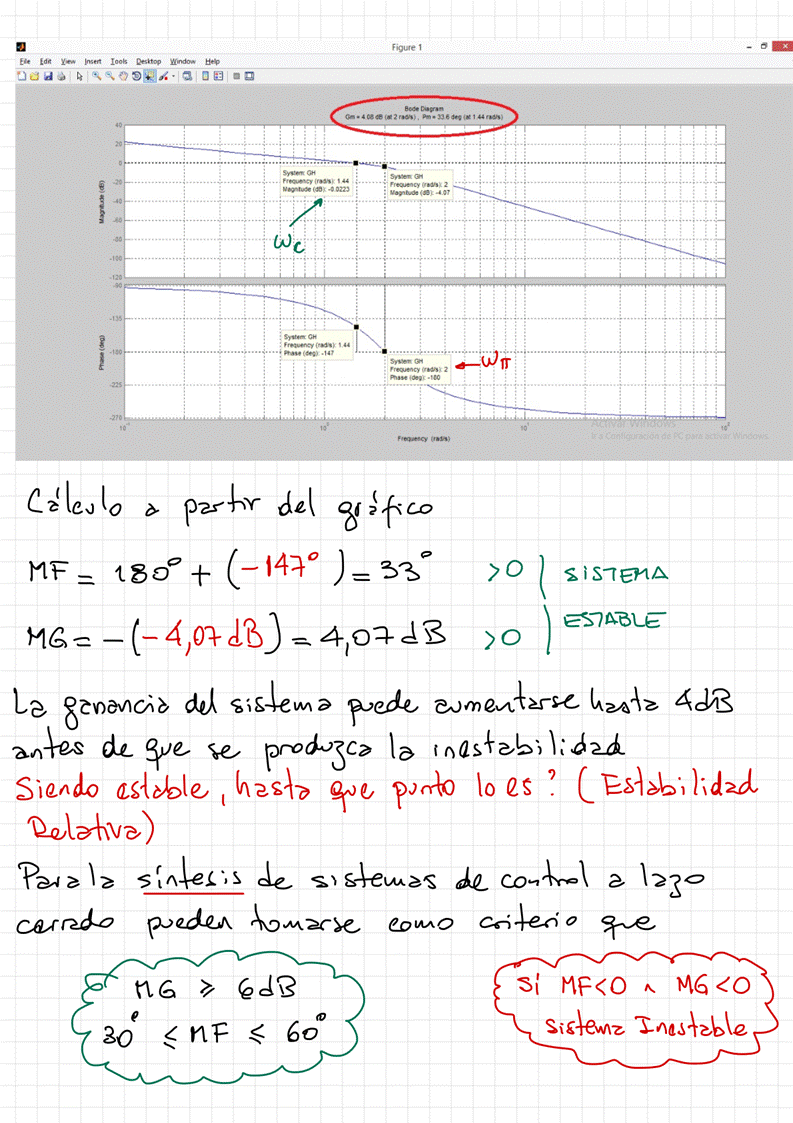 Figure 1
File Edit View Insert Tools Desktop Window Help
Bode Diagram
Gm = 4.08 dB (at 2 rad/s) , Pm = 33.6 deg (at 1.44 rad/s)
Magnitude (dB)
40
20
0
-20
-40
-60
-80
-100
-120
System: GH
Frequency (rad/s): 1.44
Magnitude (dB): -0.0223
System: GH
Frequency (rad/s): 2
Magnitude (dB): -4.07
ωc
Phase (deg)
-90
-135
-180
-225
-270
System: GH
Frequency (rad/s): 1.44
Phase (deg): -147
System: GH
Frequency (rad/s): 2
Phase (deg): -180
ωπ
10⁻¹ 10⁰ 10¹ 10²
Frequency (rad/s)
Activar Windows
Ir a Configuración de PC para activar Windows.
Cálculo a partir del gráfico
MF = 180° + (-147°) = 33° >0 SISTEMA
MG = -(-4,07 dB) = 4,07 dB >0 ESTABLE
La ganancia del sistema puede aumentarse hasta 4dB
antes de que se produzca la inestabilidad
Siendo estable, hasta que punto lo es? (Estabilidad
Relativa)
Para la síntesis de sistemas de control a lazo
cerrado pueden tomarse como criterio que
MG ⩾ 6dB
30° ⩽ MF ⩽ 60°
Si MF<0 ^ MG<0
sistema Inestable